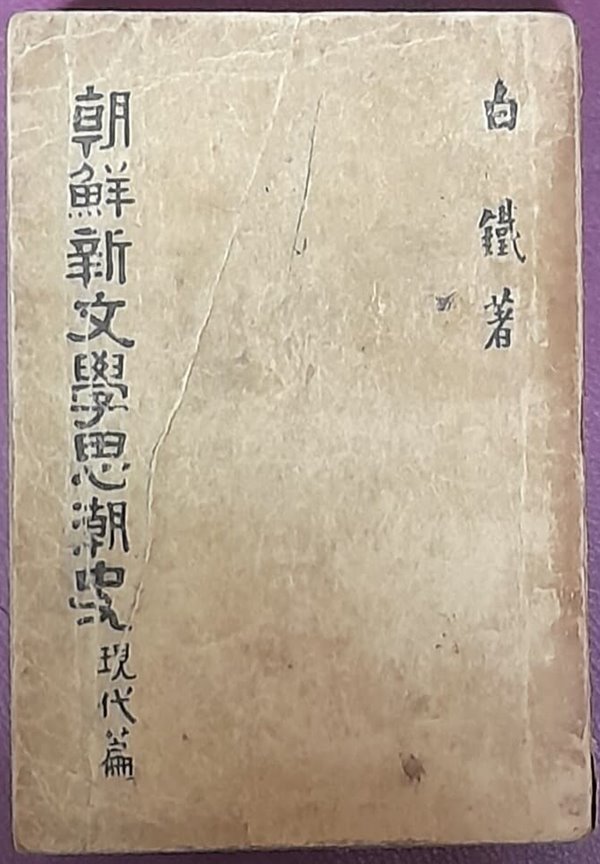 白鐵著
朝鮮新文學思潮史
現代篇